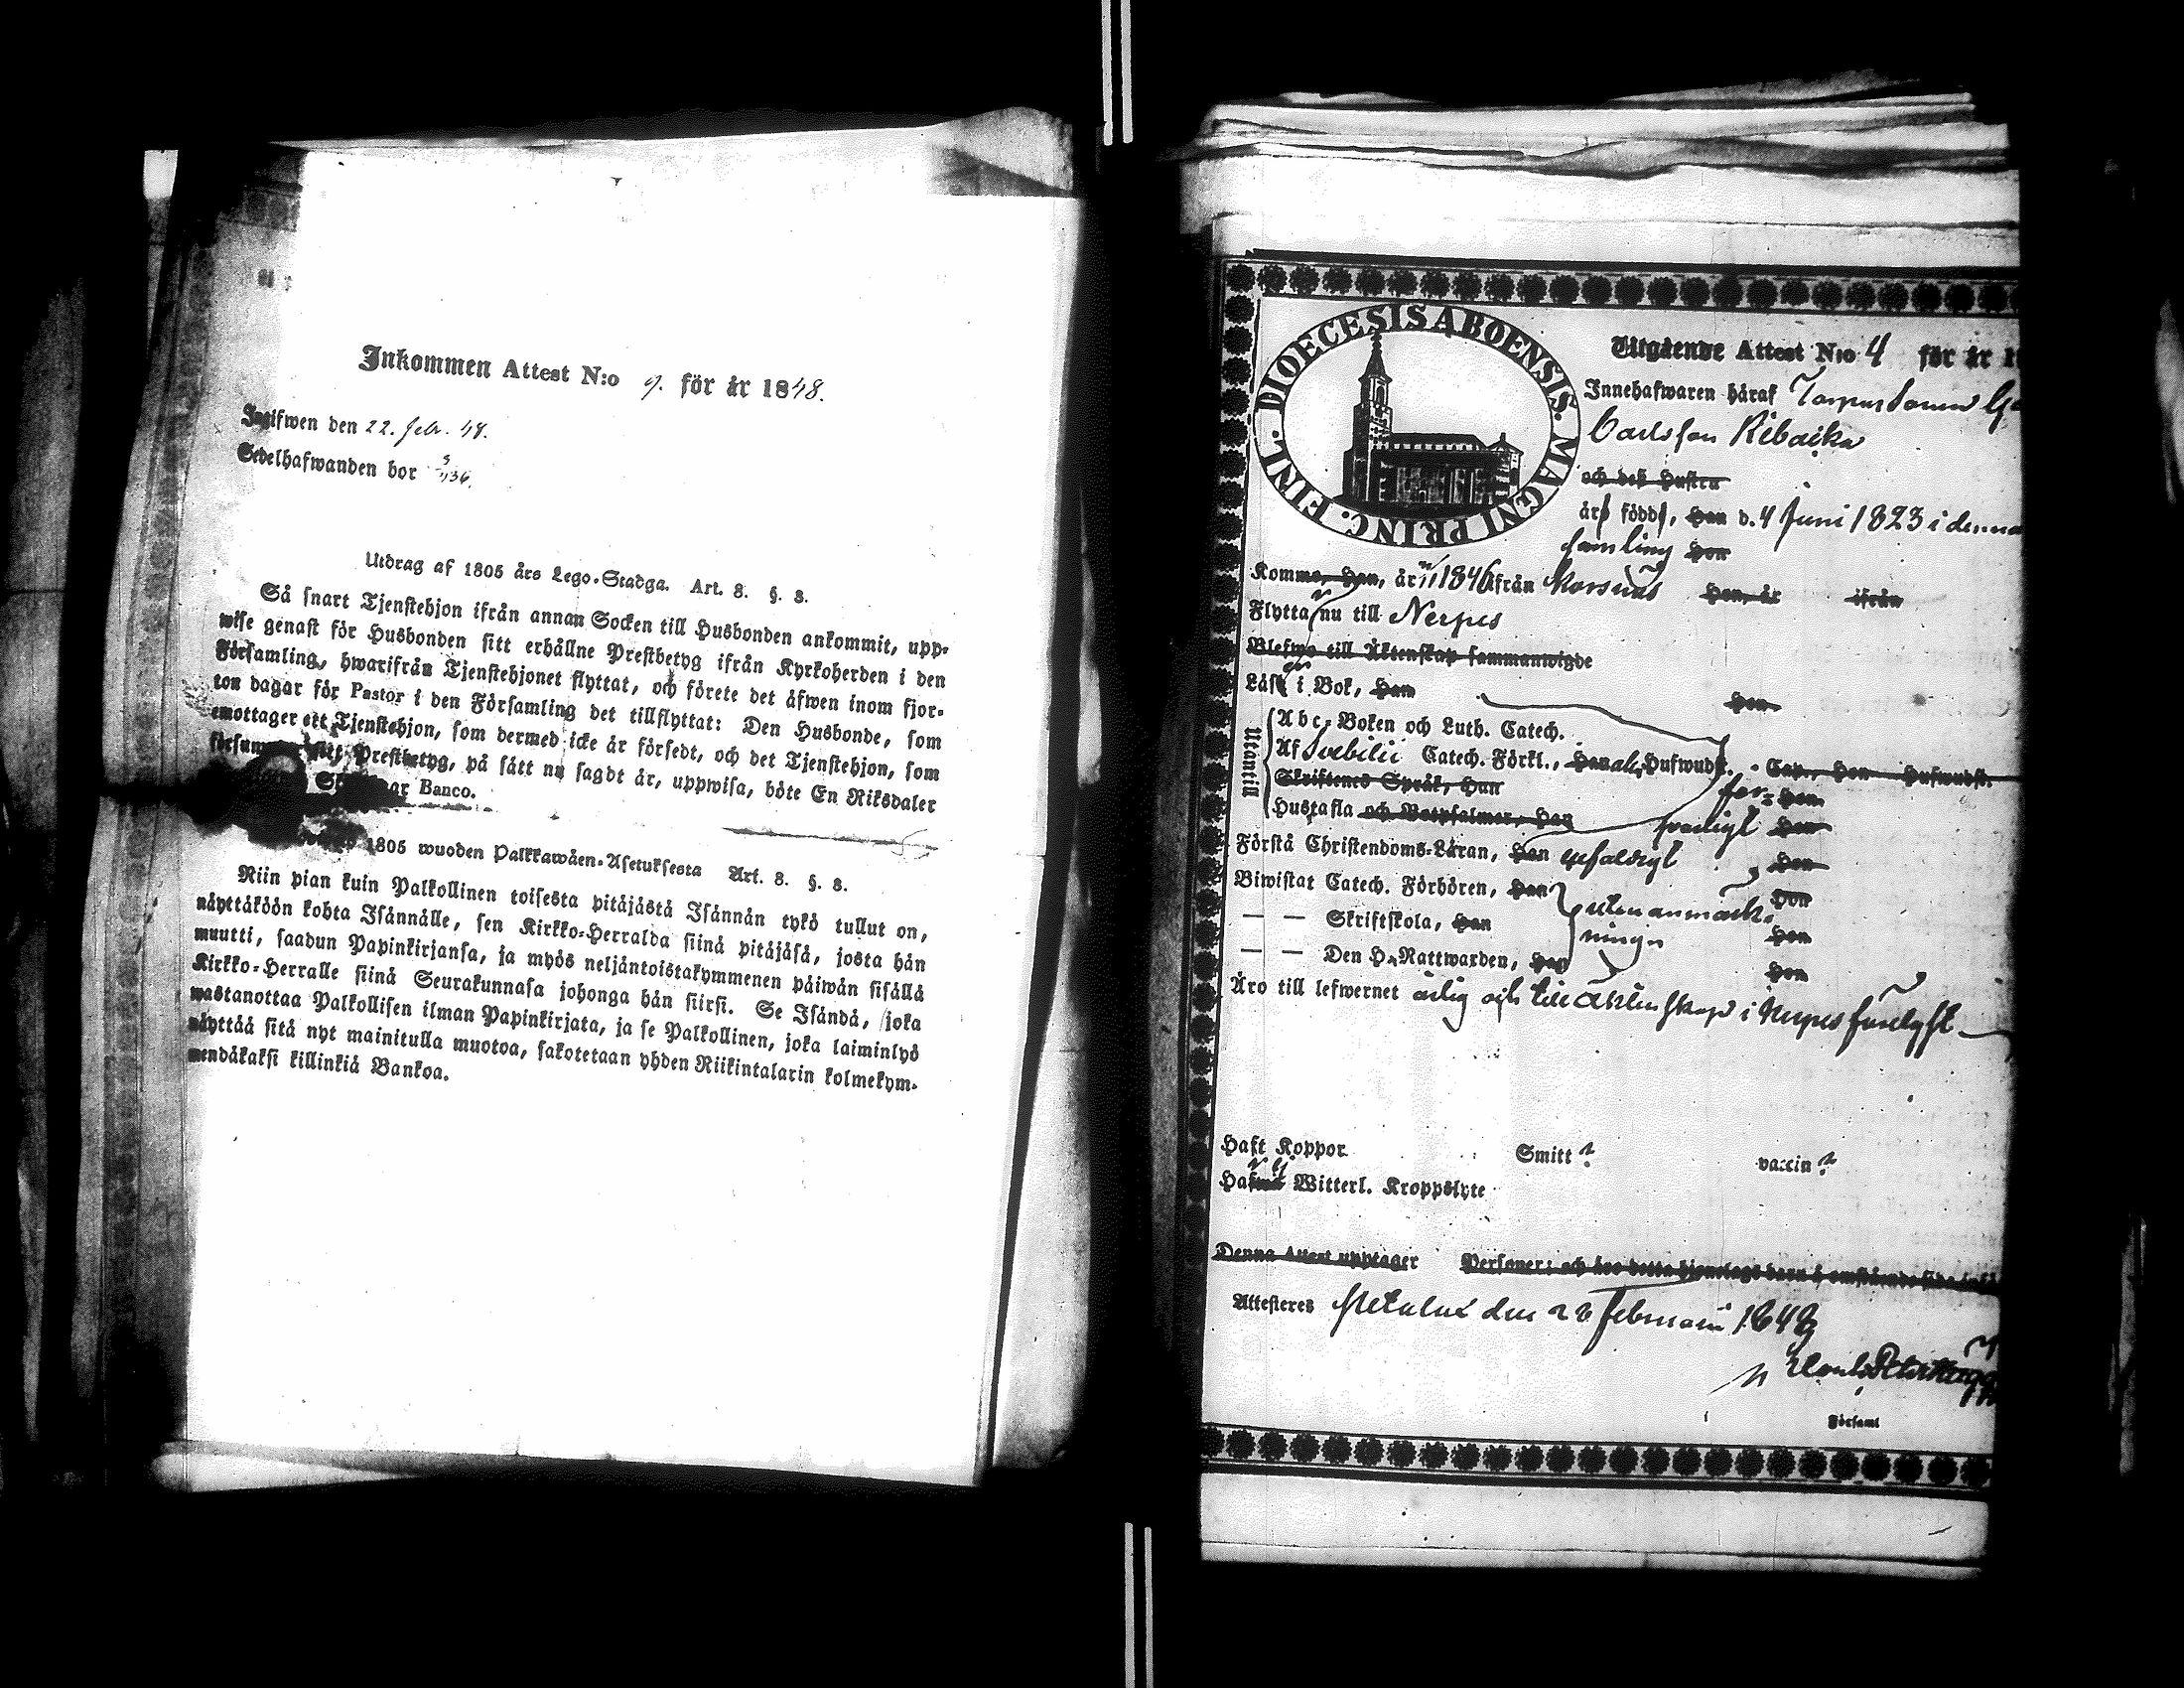 Inkommen Attest N:o 9. för år 1848.
Ingifwen den 22. Febr. 48.
Sedelhafwanden bor
Utdrag af 1805 års Lego-Stadga. Art. 8. §. 8.
Så snart Tjenstehjon ifrån annan Socken till Husbonden ankommit, upp-
wise genast för Husbonden sitt erhållne Prestbetyg ifrån Kyrkoherden i den
Församling, hwarifrån Tjenstehjonet flyttat, och förete det åfwen inom fjor-
ton dagar för Pastor i den Församling det tillflyttat: Den Husbonde, som
emottager ett Tjenstehjon, som dermed icke är försedt, och det Tjenstehjon, som
sitt Prestbetyg, på sätt nu sagdt är, uppwisa, böte En Riksdaler
Banco.
1805 wuoden Palkkawåen-Asetuksesta Art. 8. §. 8.
Niin pian kuin Palkollinen toisesta pitäjästä Isännän tykö tullut on,
näyttäköön kohta Isännälle, sen Kirkko-Herralda siinä pitäjäsä, josta hän
muutti, saadun Papinkirjansa, ja myös neljäntoistakymmenen päiwän sisällä
Kirkko-Herralle siinä Seurakunnasa johonga hän siirsi. Se Isändä, joka
wastanottaa Palkollisen ilman Papinkirjata, ja se Palkollinen, joka laiminlyö
näyttää sitä nyt mainitulla muotoa, sakotetaan yhden Riikintalarin kolmekym-
mendäkaksi killinkiä Bankoa.
DIOECESIS ABOENSIS. MAGNI PRINC. FINL.
Utgående Attest N:o 4 för år 1
Innehafwaren häraf
Carlsson Ribacka
och dess Hustru
äro födde, Han d. 4 Juni 1823 i denna
samling Hon
Komme, Han, år 1846 från Korsnäs Hon, år ifrån
Flytta nu till Nerpes
Blefwo till Äktenskap sammanwigde
Läst i Bok, Han Hon
Utantill
Abc-Boken och Luth. Catech.
Af Svebilii Catech. Förkl., Han Hufwudst. Cap., Hon Hufwudst.
Skriftenes Språk, Han Hon
Hustafla och Botpsalmer, Han Hon
Förstå Christendoms-Läran, Han Hon
Biwistat Catech. Förhören, Han Hon
— — Skriftskola, Han utan anmärk- Hon
ning
— — Den H. Nattwarden, Han Hon
Äro till lefwernet ärlig och till äktenskap i Nerpes
Haft Koppor Smitt ? vaccin ?
Hafwa ej Witterl. Kroppslyte
Denna Attest upptager Personer; och äro detta
Attesteres den 28 Februari 1848
Församl